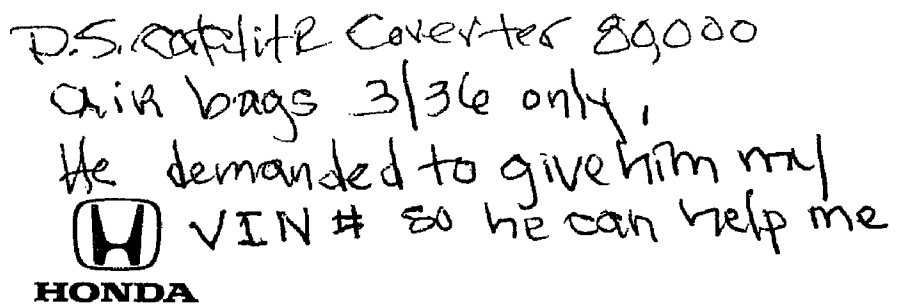 P.S. CatalitR Coverter 80,000
air bags 3/36 only,
He demanded to give him my
VIN # so he can help me
HONDA